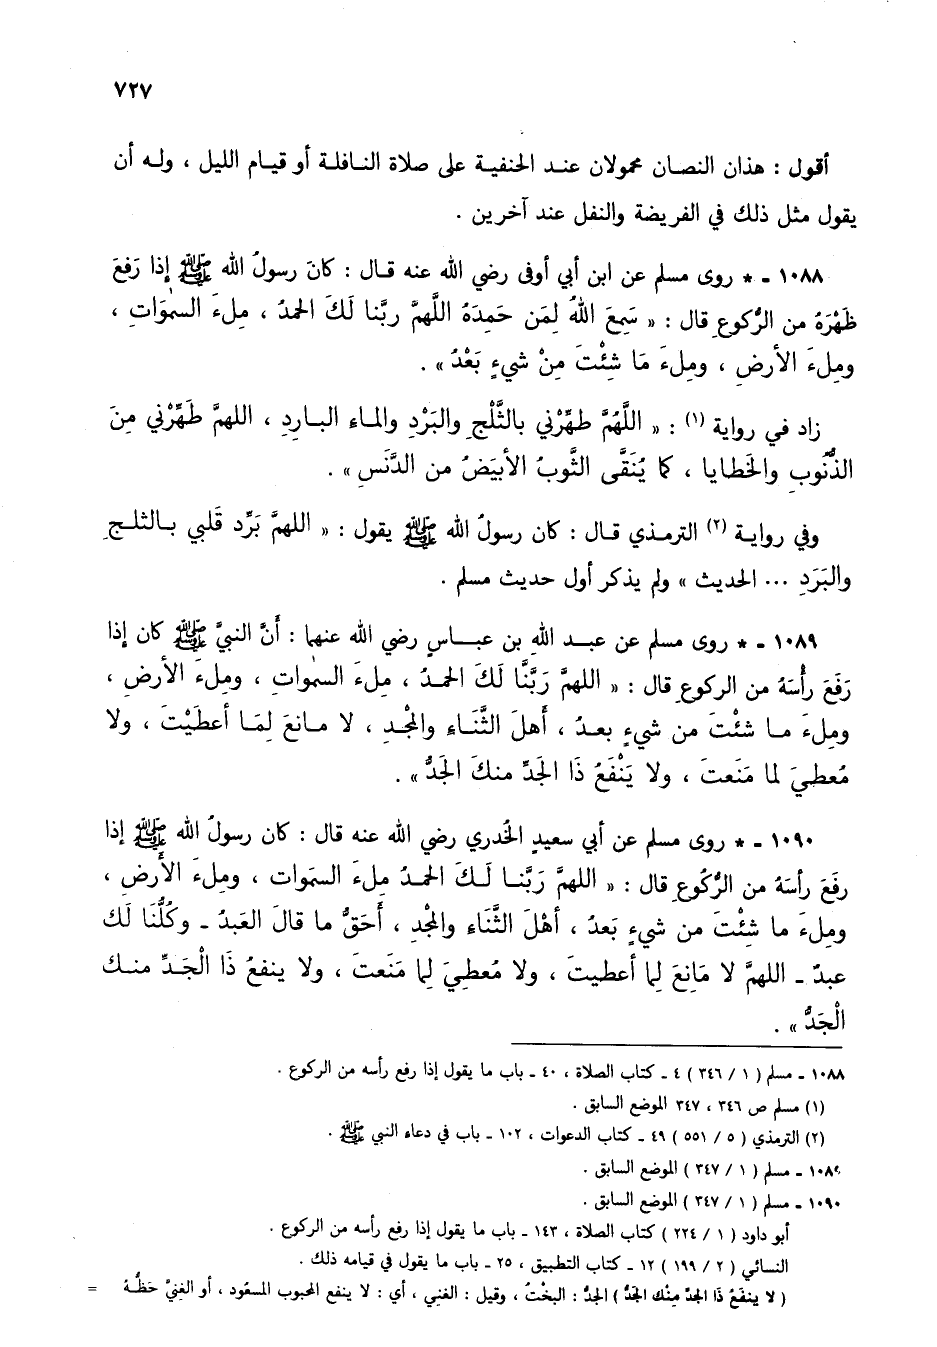 ٧٢٧
أقول : هذان النصان محمولان عند الحنفية على صلاة النافلة أو قيام الليل ، وله أن
يقول مثل ذلك في الفريضة والنفل عند آخرين .
١٠٨٨ - * روى مسلم عن ابن أبي أوفى رضي الله عنه قال : كانَ رسولُ الله ﷺ إذا رَفعَ
ظَهْرَهُ من الرُّكوعِ قال : « سَمِعَ اللهُ لِمَن حَمِدَهُ اللَّهمَّ ربَّنا لَكَ الحمدُ ، مِلءَ السمٰوَاتِ ،
ومِلءَ الأرضِ ، ومِلءَ مَا شِئْتَ مِنْ شيءٍ بَعْدُ » .
زاد في رواية (١) : « اللَّهُمَّ طهِّرْني بالثَّلْجِ والبَرْدِ والماء البارِدِ ، اللهمَّ طَهِّرْني مِنَ
الذُّنُوبِ والخَطايا ، كما يُنَقَّى الثَّوبُ الأبيَضُ من الدَّنَسِ » .
وفي رواية (٢) الترمذي قال : كان رسولُ الله ﷺ يقول : « اللهمَّ بَرِّد قَلبي بالثلجِ
والبَرَدِ ... الحديث » ولم يذكر أول حديث مسلم .
١٠٨٩ - * روى مسلم عن عبد اللهِ بن عباسٍ رضي الله عنهما : أَنَّ النبيَّ ﷺ كان إذا
رَفَعَ رأسَهُ من الركوعِ قال : « اللهمَّ رَبَّنا لَكَ الحمدُ ، مِلءَ السمٰواتِ ، ومِلءَ الأرضِ ،
ومِلءَ ما شئْتَ من شيءٍ بعدُ ، أهلَ الثَّنَاءِ والمْجدِ ، لا مانعَ لِمَا أعطَيْتَ ، ولا
مُعطِيَ لما مَنَعتَ ، ولا يَنْفَعُ ذَا الجَدِّ منكَ الجَدُّ » .
١٠٩٠ - * روى مسلم عن أبي سعيدٍ الخُدري رضي الله عنه قال : كان رسولُ الله ﷺ إذا
رفَعَ رأسَهُ من الرُّكُوعِ قال : « اللهمَّ رَبَّنا لَكَ الحمدُ مِلءَ السمَواتِ ، ومِلءَ الأَرضِ ،
ومِلءَ ما شِئْتَ من شيءٍ بَعدُ ، أهْلَ الثَّنَاءِ والمْجْدِ ، أَحَقُّ ما قالَ العَبدُ - وكُلُّنَا لَك
عبدٌ - اللهمَّ لا مَانِعَ لِما أعطيتَ ، ولا مُعطِيَ لِما مَنَعتَ ، ولا ينفعُ ذَا الْجَدِّ منكَ
الْجَدُّ » .
١٠٨٨ - مسلم ( ١ / ٣٤٦ ) ٤ - كتاب الصلاة ، ٤٠ - باب ما يقول إذا رفع رأسه من الركوع .
(١) مسلم ص ٣٤٦ ، ٣٤٧ الموضع السابق .
(٢) الترمذي ( ٥ / ٥٥١ ) ٤٩ - كتاب الدعوات ، ١٠٢ - باب في دعاء النبي ﷺ .
١٠٨٩ - مسلم ( ١ / ٣٤٧ ) الموضع السابق .
١٠٩٠ - مسلم ( ١ / ٣٤٧ ) الموضع السابق .
أبو داود ( ١ / ٢٢٤ ) كتاب الصلاة ، ١٤٣ - باب ما يقول إذا رفع رأسه من الركوع .
النسائي ( ٢ / ١٩٩ ) ١٢ - كتاب التطبيق ، ٢٥ - باب ما يقول في قيامه ذلك .
( لا يَنفَعُ ذَا الجدِّ مِنْك الجَدُّ ) الجدُّ : البختُ ، وقيل : الغنى ، أي : لا ينفع المحبوب المسعود ، أو الغنيَّ حَظُّهُ =